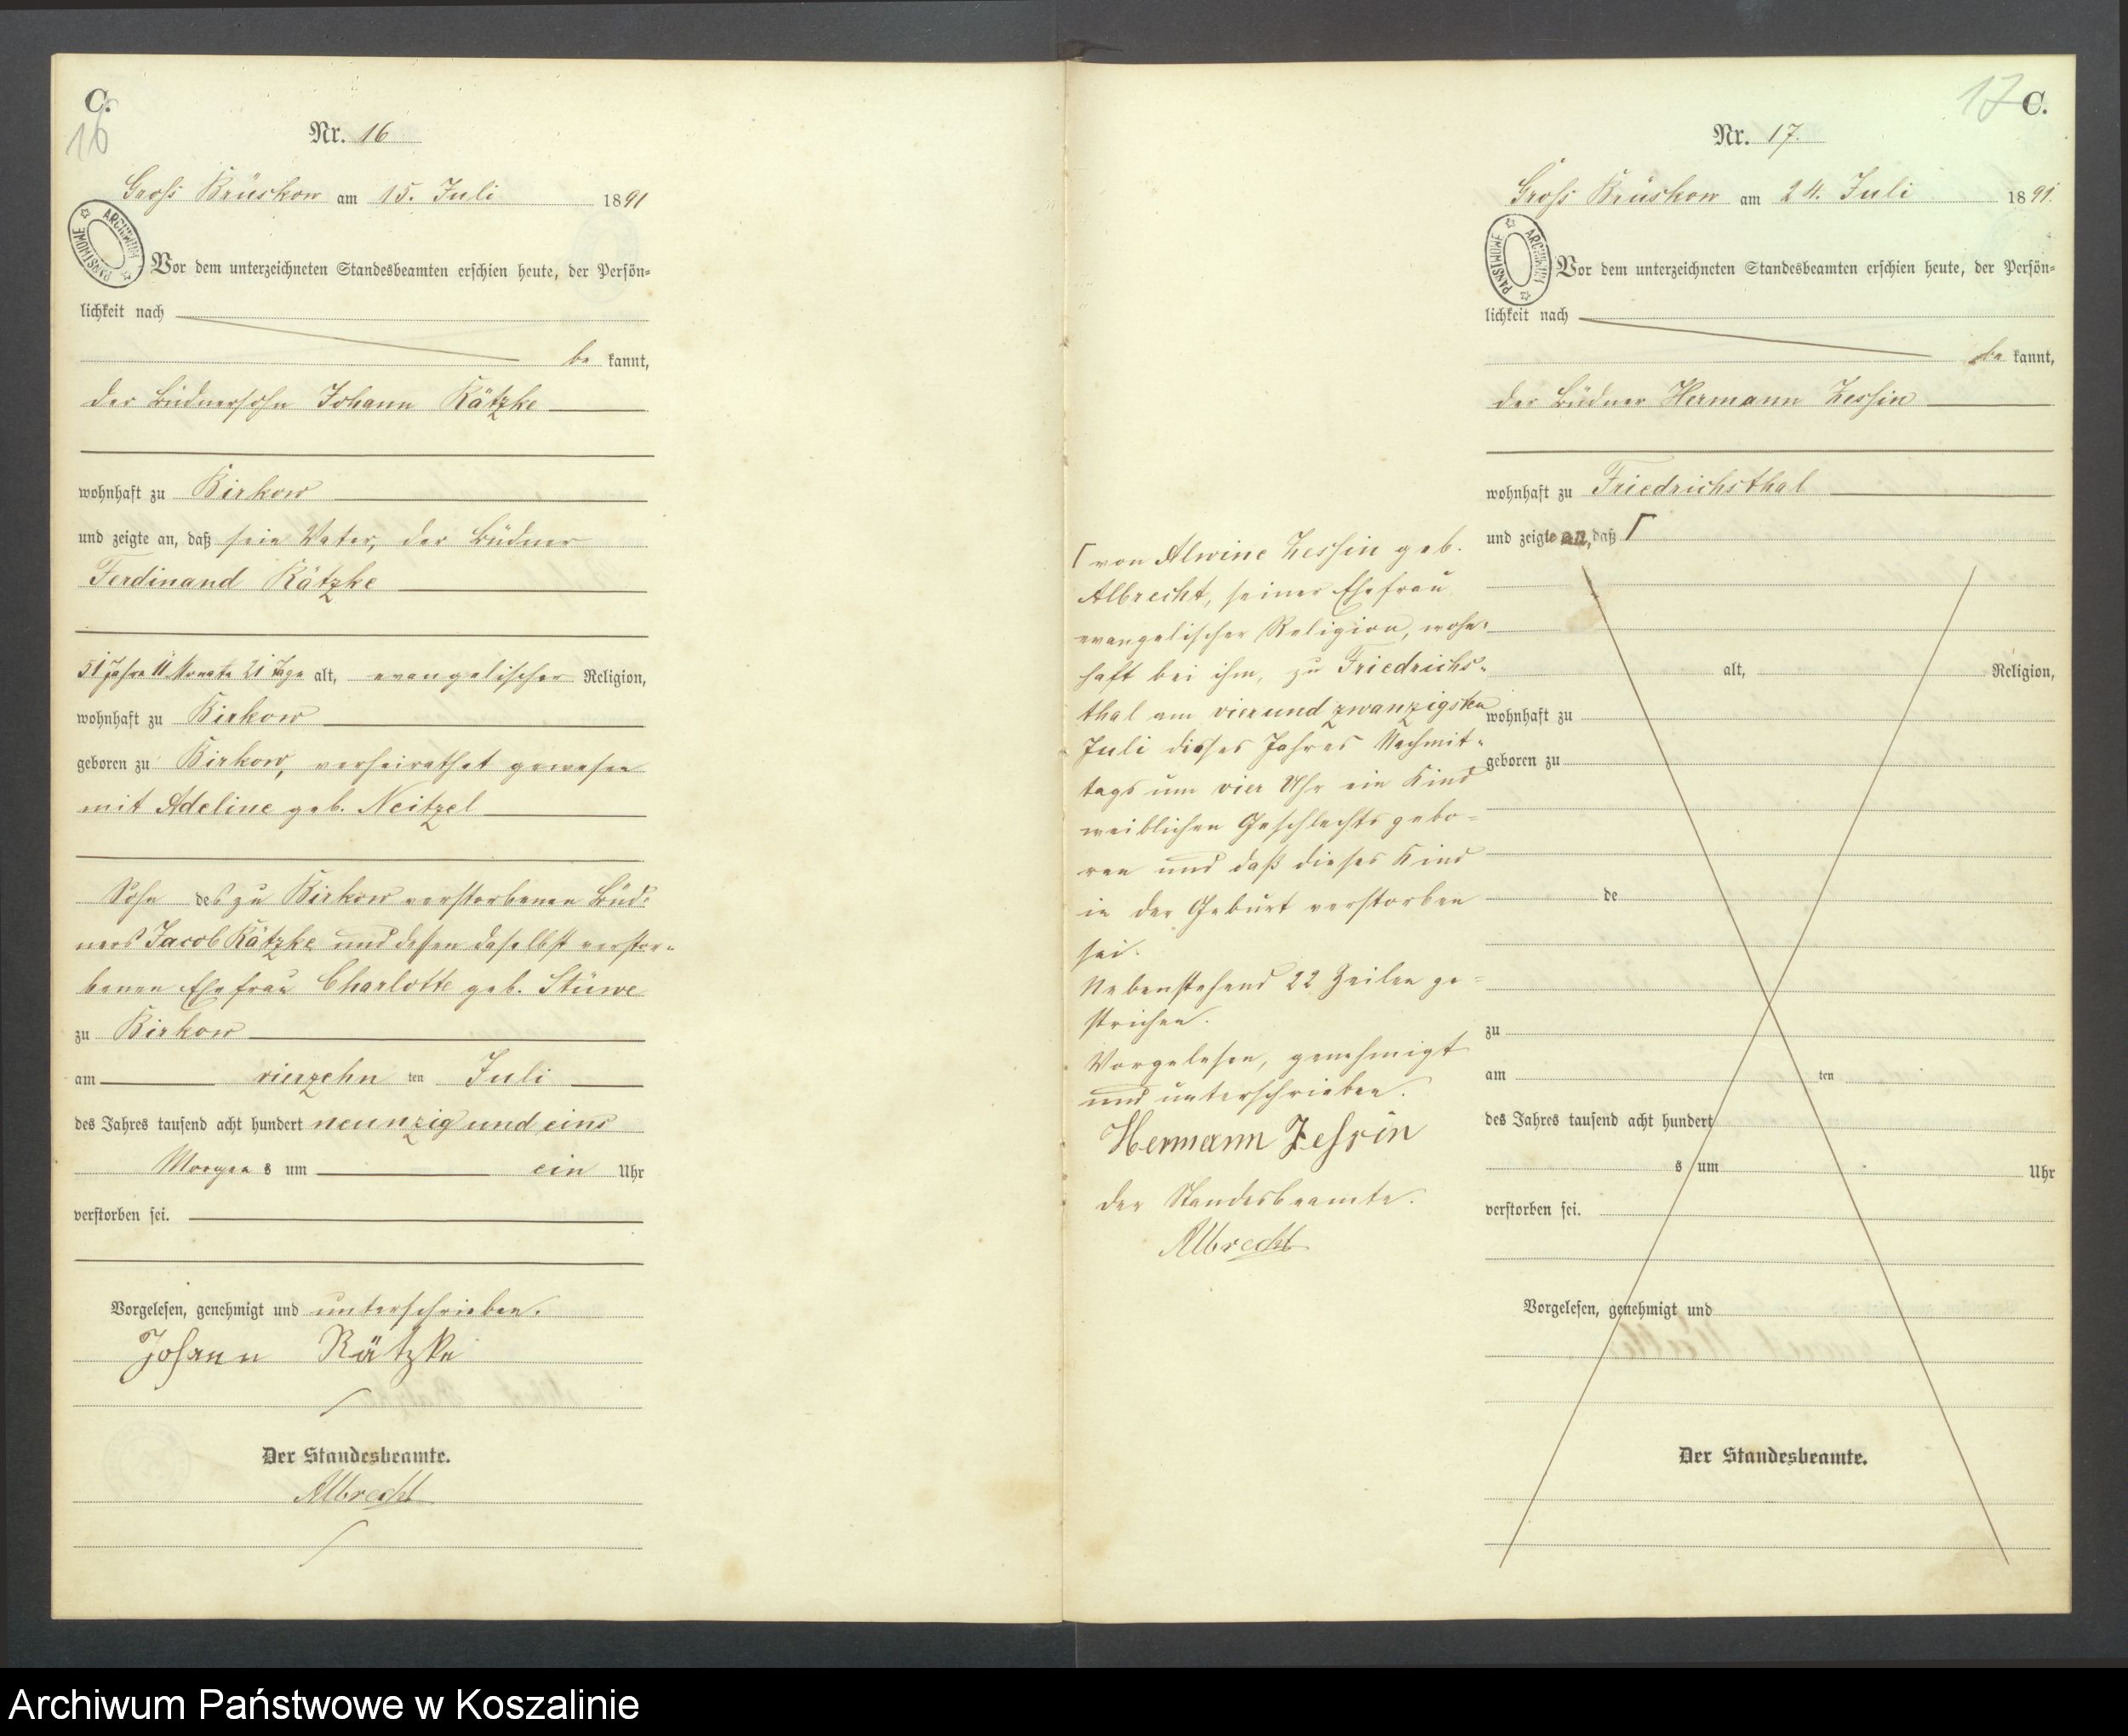 C.
16
Nr. 16
Groß Brüskow am 15. Juli 1891
ARCHIWUM PAŃSTWOWE
Vor dem unterzeichneten Standesbeamten erschien heute, der Persön=
lichkeit nach
be kannt,
der Büdnersohn Johann Kätzke
wohnhaft zu Birkow
und zeigte an, daß sein Vater, der Büdner
Ferdinand Kätzke
51 Jahre 11 Monate 21 Tage alt, evangelischer Religion,
wohnhaft zu Birkow
geboren zu Birkow, verheirathet gewesen
mit Adeline geb. Neitzel
Sohn des zu Birkow verstorbenen Büd=
ners Jacob Kätzke und dessen daselbst verstor=
benen Ehefrau Charlotte geb. Stüwe
zu Birkow
am vierzehn ten Juli
des Jahres tausend acht hundert neunzig und eins
Morgen s um ein Uhr
verstorben sei.
Vorgelesen, genehmigt und unterschrieben.
Johann Kätzke
Der Standesbeamte.
Albrecht
17 C.
Nr. 17.
Groß Brüskow am 24. Juli 1891.
ARCHIWUM PAŃSTWOWE
Vor dem unterzeichneten Standesbeamten erschien heute, der Persön=
lichkeit nach
be kannt,
der Büdner Hermann Zessin
wohnhaft zu Friedrichsthal
und zeigte an, daß Γ
Γ von Alwine Zessin geb.
Albrecht, seiner Ehefrau
evangelischer Religion, wohn=
haft bei ihm, zu Friedrichs=
thal am vierundzwanzigsten
Juli dieses Jahres Nachmit=
tags um vier Uhr ein Kind
weiblichen Geschlechts gebo=
ren und daß dieses Kind
in der Geburt verstorben
sei.
Nebenstehend 22 Zeilen ge=
strichen.
Vorgelesen, genehmigt
und unterschrieben.
Hermann Zessin
der Standesbeamte.
Albrecht
alt, Religion,
wohnhaft zu
geboren zu
de
zu
am ten
des Jahres tausend acht hundert
s um Uhr
verstorben sei.
Vorgelesen, genehmigt und
Der Standesbeamte.
Archiwum Państwowe w Koszalinie